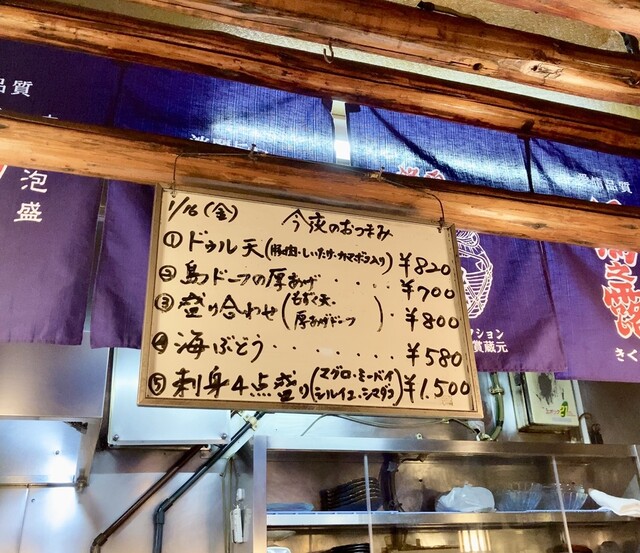 品質
泡盛
1/16(金) 今夜のおつまみ
① ドゥル天(豚肉・しいたけ・カマボコ入り) ¥820
② 島ドーフの厚あげ ・・・・ ¥700
③ 盛り合わせ(もずく天・厚あげドーフ)・ ¥800
④ 海ぶどう ・・・・・・・・ ¥580
⑤ 刺身4点盛り(マグロ・ミーバイ シルイユ・シマダコ) ¥1,500
ション
賞蔵元
きく